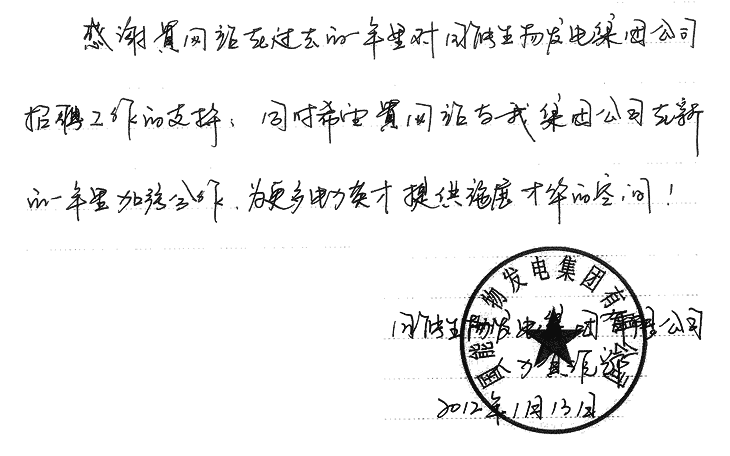 感谢贵网站在过去的一年里对国能生物发电集团公司
招聘工作的支持，同时希望贵网站与我集团公司在新
的一年里加强合作，为更多电力英才提供施展才华的空间！
国能生物发电集团有限公司
国能生物发电集团有限公司
人力资源部
2012年1月13日